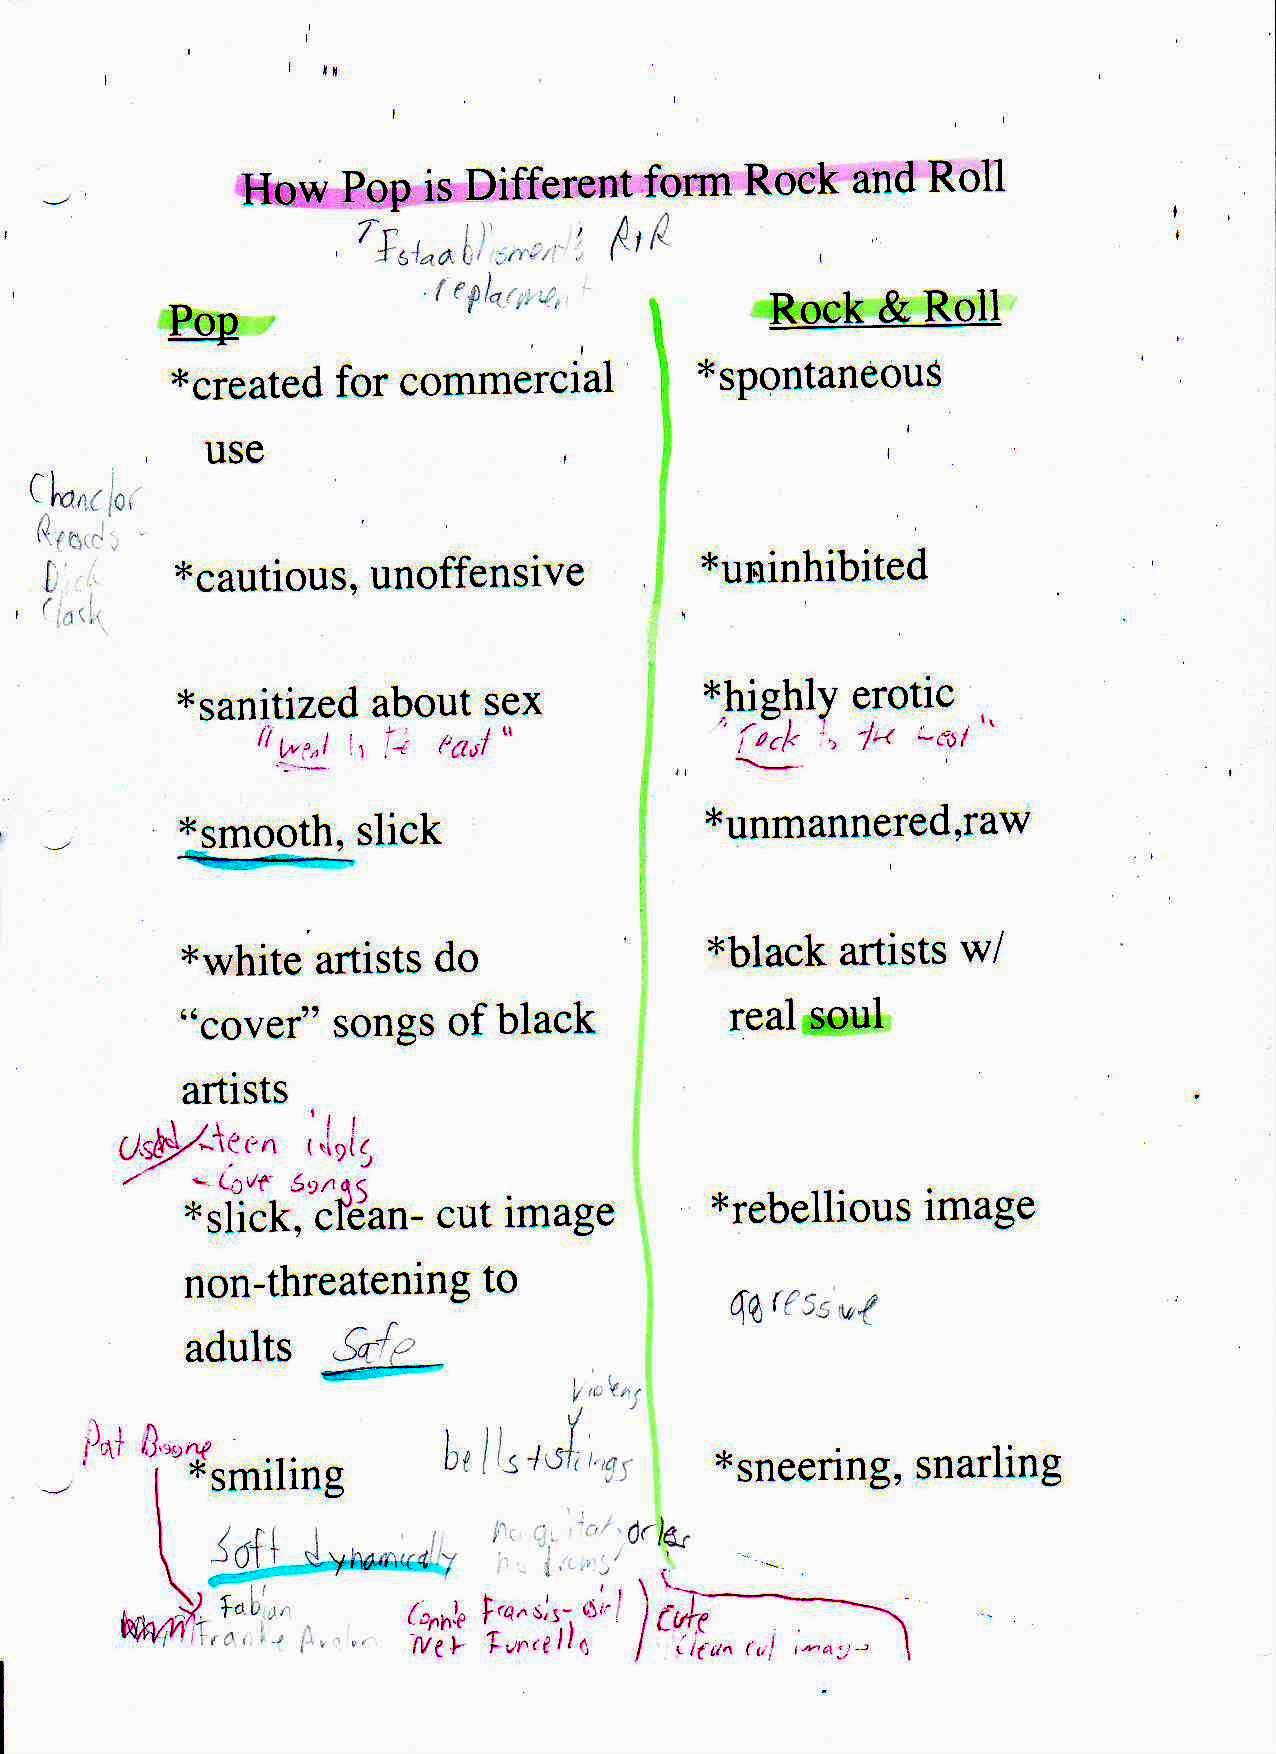 How Pop is Different form Rock and Roll
R+R
Pop
Rock & Roll
*created for commercial
use
*spontaneous
Dick
*cautious, unoffensive
*uninhibited
*sanitized about sex
*highly erotic
east"
"rock in the
*smooth, slick
*unmannered,raw
*white artists do
“cover” songs of black
artists
*black artists w/
real soul
Used teen idols
- Love songs
*slick, clean- cut image
non-threatening to
adults Safe
*rebellious image
agressive
Pat Boone
*smiling
bells + strings
*sneering, snarling
Soft dynamically
no guitar, or less
no drums
Fabian
Connie Fransis- Girl
Cute
clean cut image